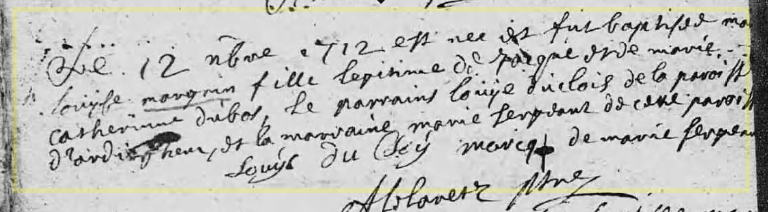 Le 12 nbre 1712 est nee et fut baptisée ma
louyse marquin fille legitime de Jacque et de marie
catherinne dubos, Le parrains louÿe duclois de la paroiss
D'ardinghem, et la marraine marie sergeant de cette paroiss
Louÿs du marcq de marie sergean